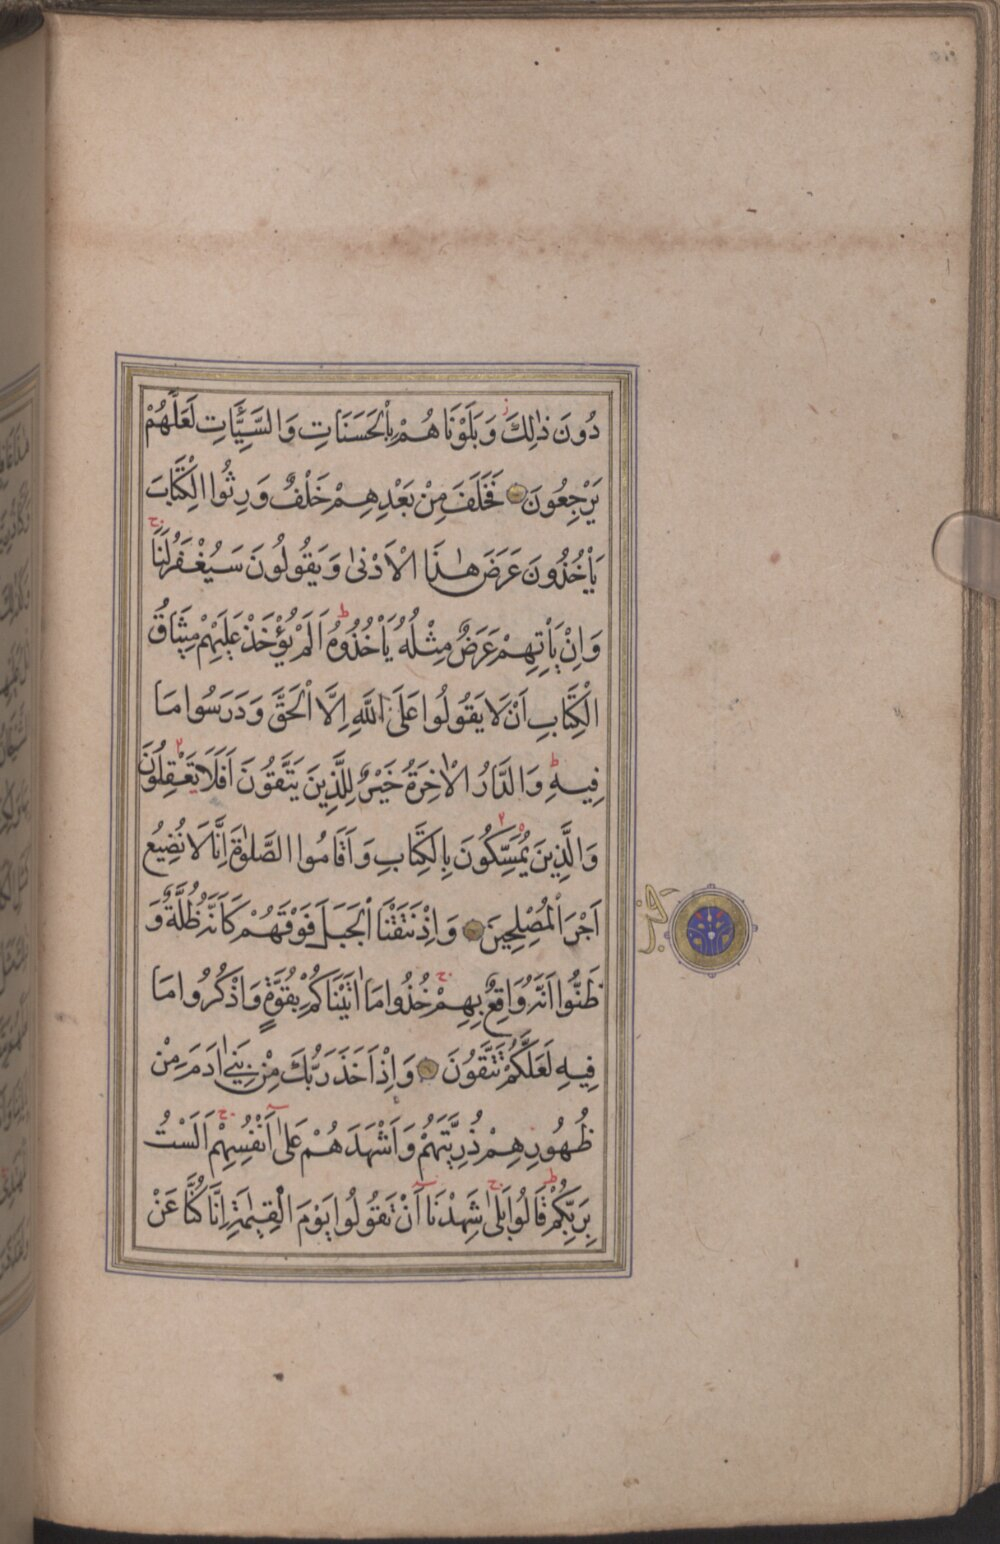 دُونَ ذٰلِكَ وَبَلَوْنَاهُمْ بِالْحَسَنَاتِ وَالسَّيِّئَاتِ لَعَلَّهُمْ
يَرْجِعُونَ فَخَلَفَ مِنْ بَعْدِهِمْ خَلْفٌ وَرِثُوا الْكِتَابَ
يَأْخُذُونَ عَرَضَ هٰذَا الْاَدْنٰى وَيَقُولُونَ سَيُغْفَرُ لَنَا
وَاِنْ يَأْتِهِمْ عَرَضٌ مِثْلُهُ يَأْخُذُوهُ اَلَمْ يُؤْخَذْ عَلَيْهِمْ مِيثَاقُ
الْكِتَابِ اَنْ لَا يَقُولُوا عَلَى اللّٰهِ اِلَّا الْحَقَّ وَدَرَسُوا مَا
فِيهِ وَالدَّارُ الْاٰخِرَةُ خَيْرٌ لِلَّذِينَ يَتَّقُونَ اَفَلَا تَعْقِلُونَ
وَالَّذِينَ يُمَسِّكُونَ بِالْكِتَابِ وَاَقَامُوا الصَّلٰوةَ اِنَّا لَا نُضِيعُ
اَجْرَ الْمُصْلِحِينَ وَاِذْ نَتَقْنَا الْجَبَلَ فَوْقَهُمْ كَاَنَّهُ ظُلَّةٌ وَ
ظَنُّوا اَنَّهُ وَاقِعٌ بِهِمْ خُذُوا مَا اٰتَيْنَاكُمْ بِقُوَّةٍ وَاذْكُرُوا مَا
فِيهِ لَعَلَّكُمْ تَتَّقُونَ وَاِذْ اَخَذَ رَبُّكَ مِنْ بَنِي اٰدَمَ مِنْ
ظُهُورِهِمْ ذُرِّيَّتَهُمْ وَاَشْهَدَهُمْ عَلٰى اَنْفُسِهِمْ اَلَسْتُ
بِرَبِّكُمْ قَالُوا بَلٰى شَهِدْنَا اَنْ تَقُولُوا يَوْمَ الْقِيٰمَةِ اِنَّا كُنَّا عَنْ